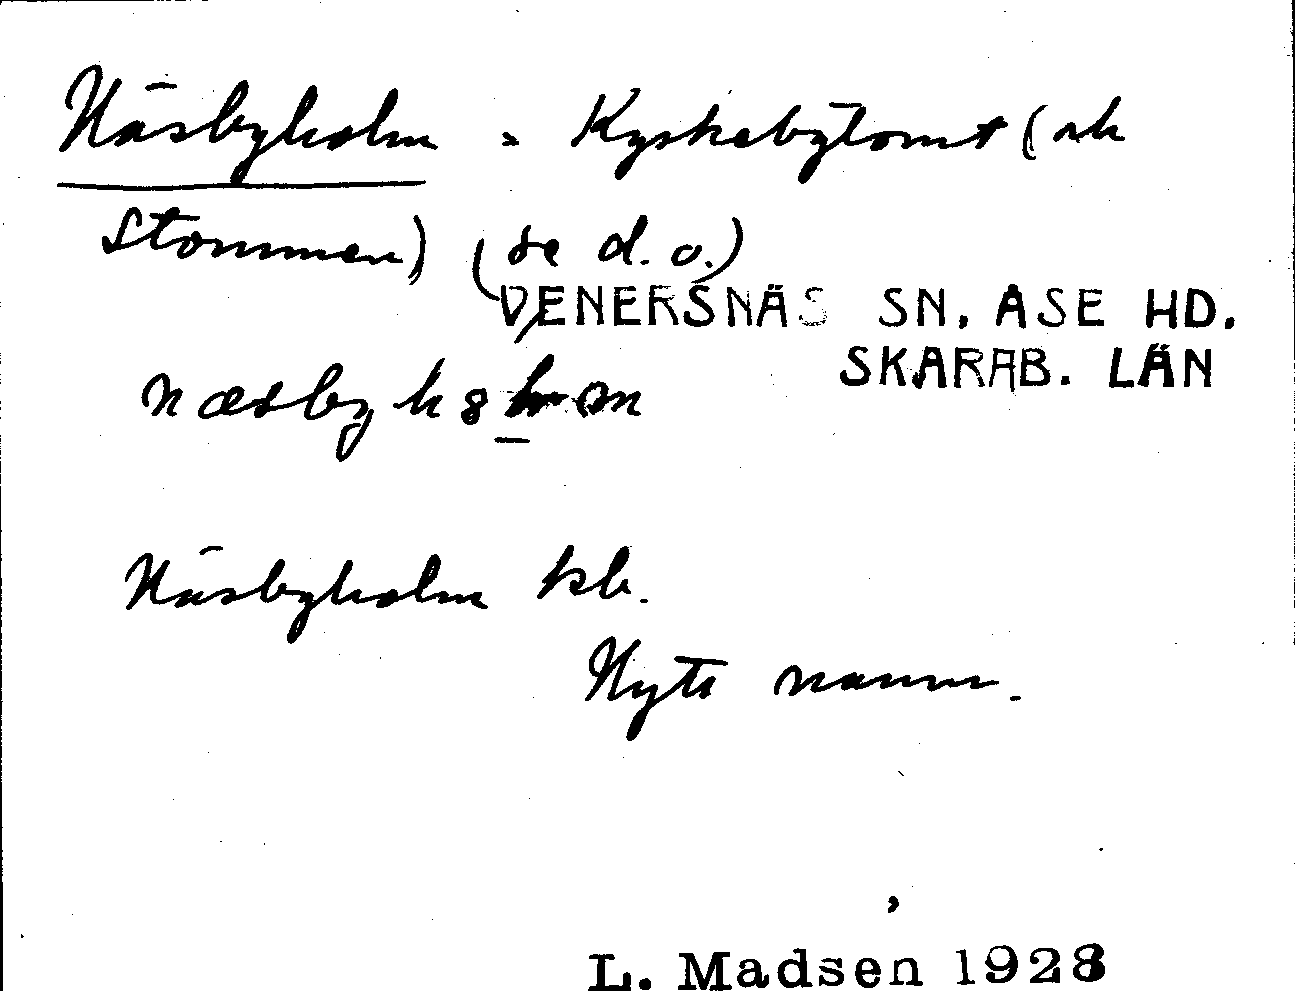 Näsbyholm = Kyrkebytomt (och
Stommen) (se d. o.)
VENERSNÄS SN. ASE HD.
SKARAB. LÄN
Näsbyholm kb.
Nytt namn.
L. Madsen 1928